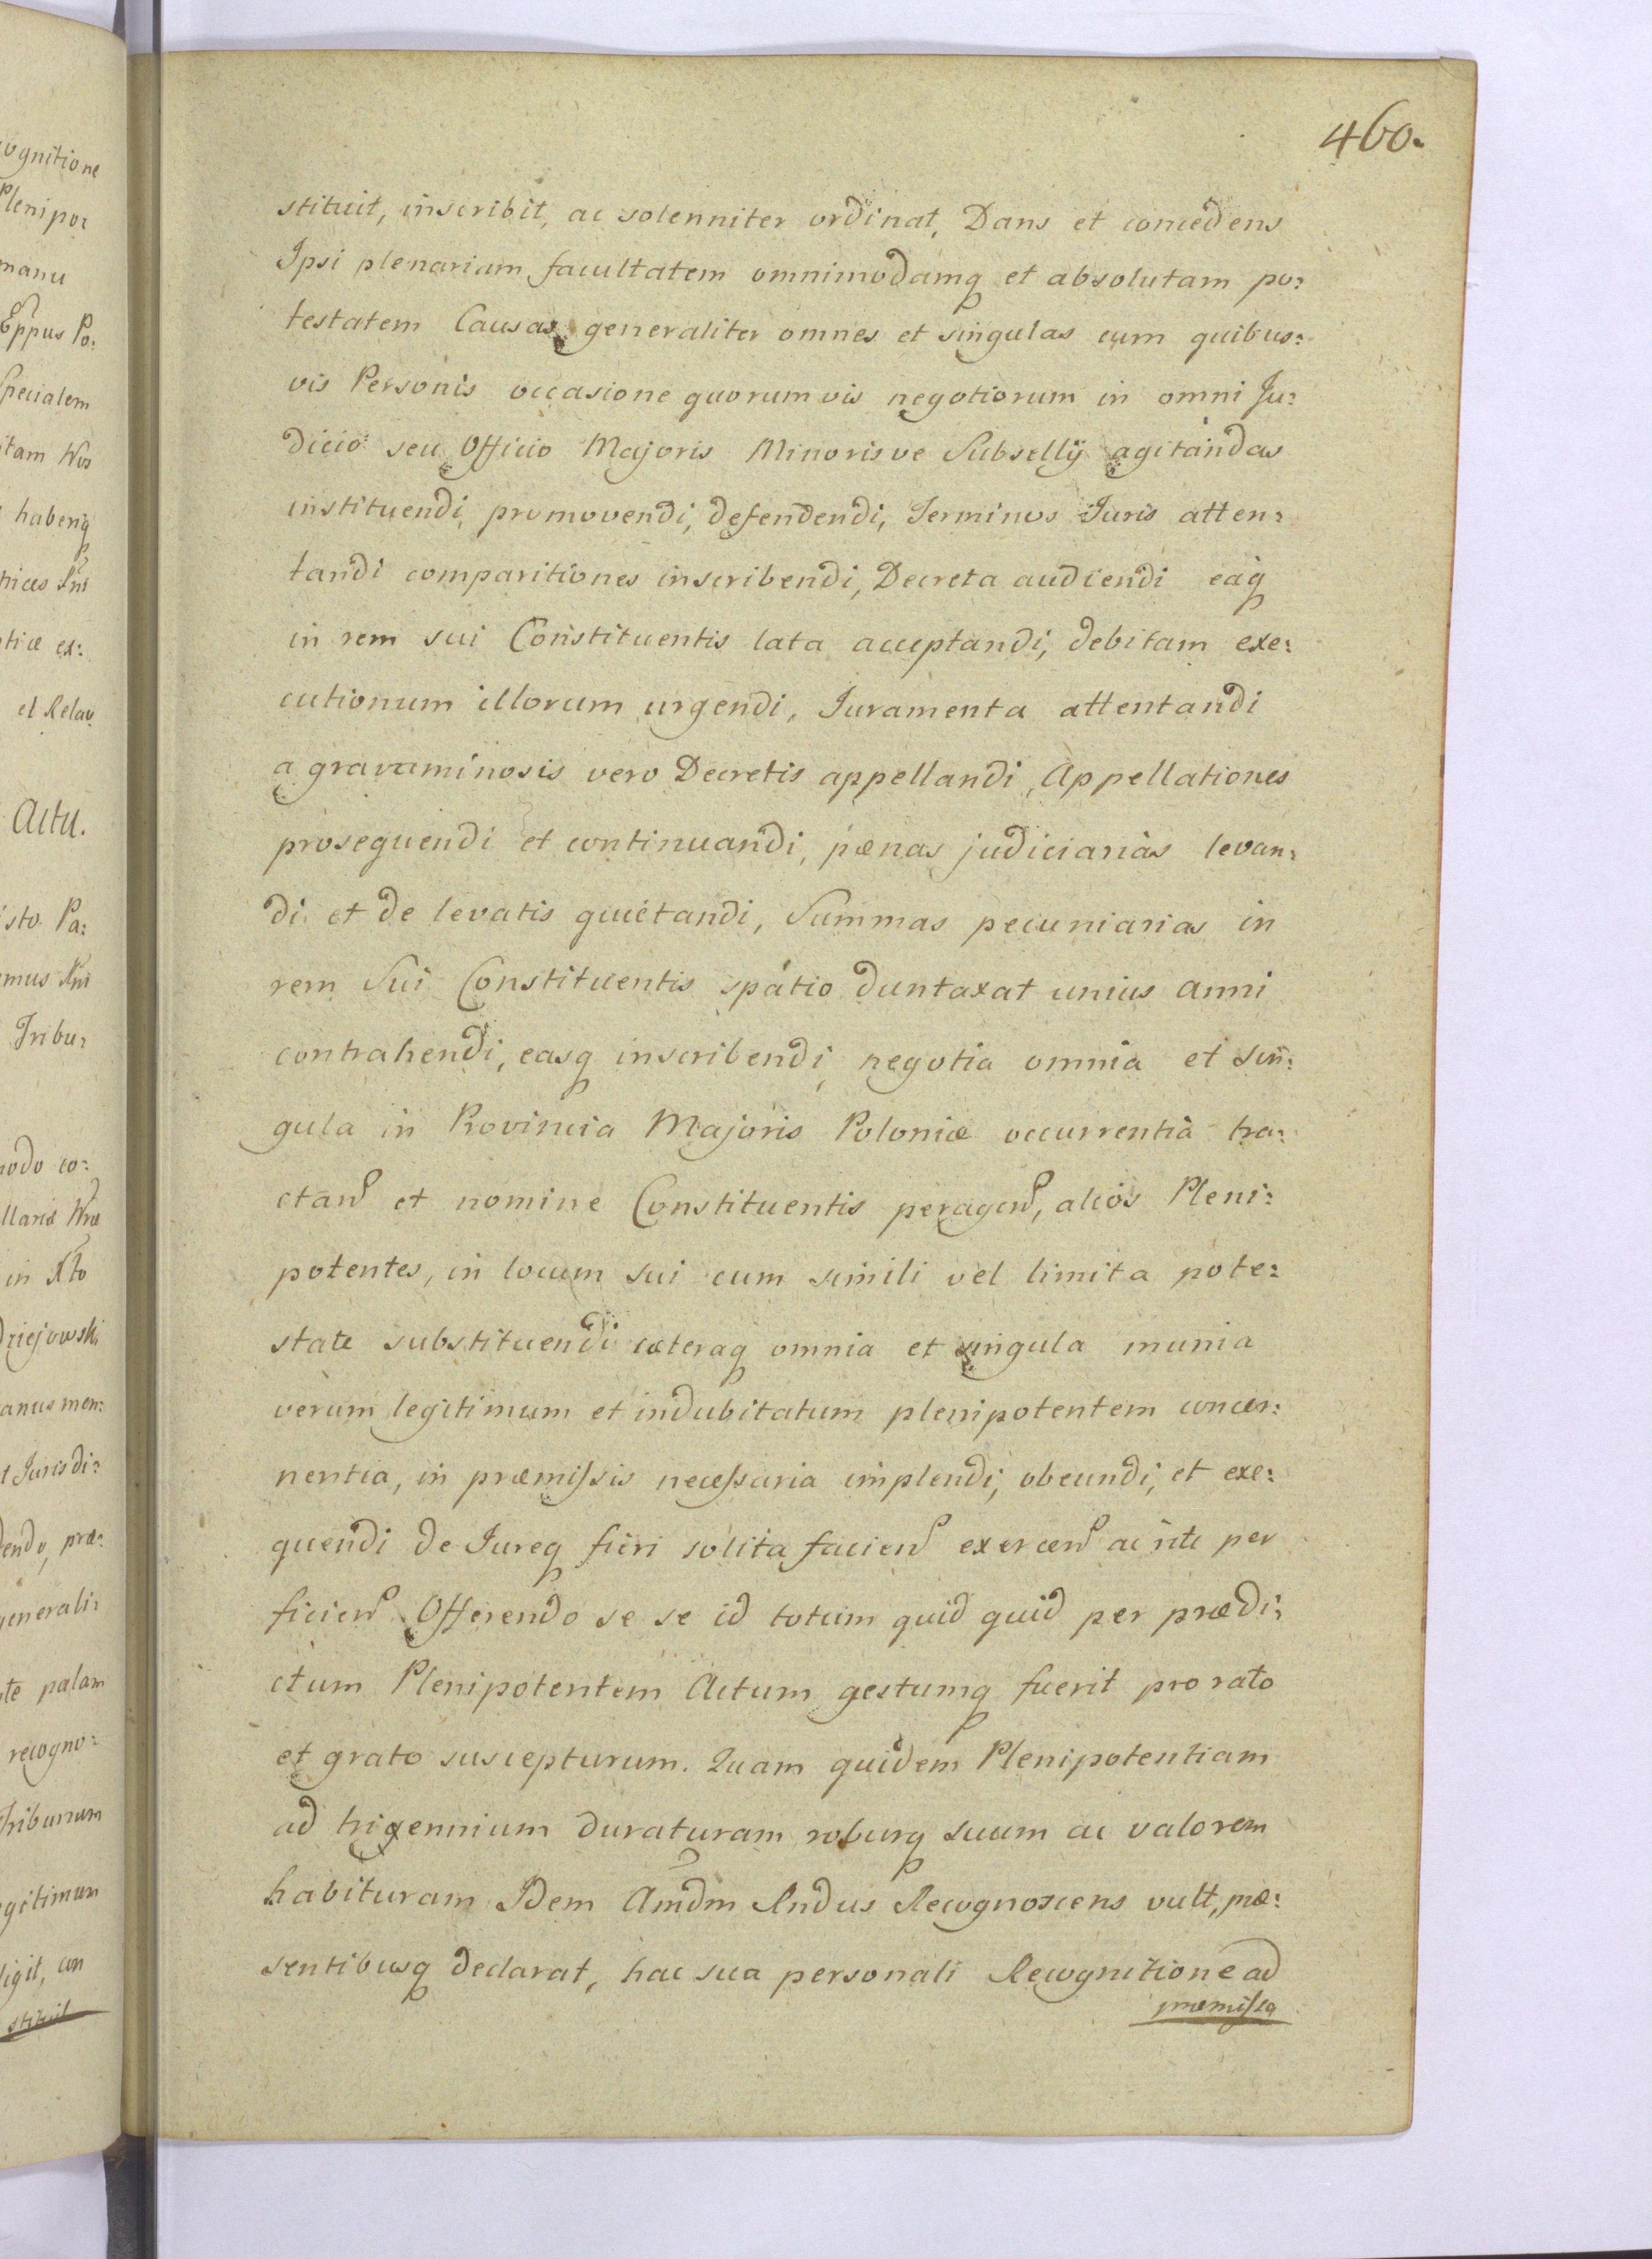 460.
stituit, inscribit, ac solenniter ordinat, Dans et concedens
Ipsi plenariam facultatem omnimodamq et absolutam po:
testatem Causas generaliter omnes et singulas cum quibus:
vis Personis occasione quorumvis negotiorum in omni Ju:
dicio seu Officio Majoris Minorisve Subsellij agitandas
instituendi, promovendi, defendendi, Terminos Juris atten:
tandi comparitiones inscribendi, Decreta audiendi eaq
in rem sui Constituentis lata acceptandi, debitam exe:
cutionum illorum urgendi, Juramenta attentandi
a gravaminosis vero Decretis appellandi, Appellationes
prosequendi et continuandi, pænas judiciarias levan:
di et de levatis quietandi, Summas pecuniarias in
rem Sui Constituentis spatio duntaxat unius anni
contrahendi, easq inscribendi, negotia omnia et sin:
gula in Provincia Majoris Poloniæ occurrentia tra:
ctan et nomine Constituentis peragen, alios Pleni:
potentes, in locum sui cum simili vel limita pote:
state substituendi cæteraq omnia et singula munia
verum legitimum et indubitatum plenipotentem concer:
nentia, in præmissis necessaria implendi, obeundi, et exe:
quendi de Jureq fieri solita facien exercen ac rite per
ficien Offerendo se se id totum quid quid per prædi:
ctum Plenipotentem Actum gestumq fuerit pro rato
et grato suscepturum. Quam quidem Plenipotentiam
ad trigennium duraturam roburq suum ac valorem
habituram Idem Amdm Rndus Recognoscens vult, præ:
sentibusq declarat, hac sua personali Recognitione ad
præmissa